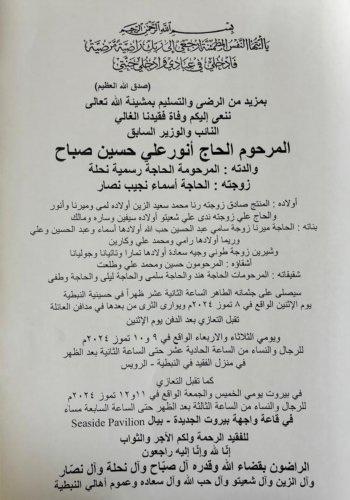 بسم الله الرحمن الرحيم
يا أيتها النفس المطمئنة ارجعي إلى ربك راضية مرضية
فادخلي في عبادي وادخلي جنتي
(صدق الله العظيم)
بمزيد من الرضى والتسليم بمشيئة الله تعالى
ننعى إليكم وفاة فقيدنا الغالي
النائب والوزير السابق
المرحوم الحاج أنور علي حسين صباح
والدته : المرحومة الحاجة رسمية نحلة
زوجته : الحاجة أسماء نجيب نصار
أولاده : المنتج صادق زوجته رنا محمد سعيد الزين أولاده لمى وميرنا وأنور
والحاج علي زوجته ندى علي شعيتو أولاده سيفين وساره ومالك
بناته : الحاجة ميرنا زوجة سامي عبد الحسين حب الله أولادها أسماء وعبد الحسين وعلي
وريما أولادها رامي ومحمد علي وكارين
وشيرين زوجة طوني وجيه سعادة أولادها تمارا وتاتيانا وجوليانا
أشقاؤه : المرحومون حسين ومحمد علي وطلعت
شقيقاته : المرحومات الحاجة هند والحاجة سلمى والحاجة ليلى والحاجة وطفى
سيصلى على جثمانه الطاهر الساعة الثانية عشر ظهراً في حسينية النبطية
يوم الإثنين الواقع في ٨ تموز ٢٠٢٤م ويوارى الثرى من بعدها في مدافن العائلة
تقبل التعازي بعد الدفن يوم الإثنين
ويومي الثلاثاء والاربعاء الواقع في ٩ و١٠ تموز ٢٠٢٤م
للرجال والنساء من الساعة الحادية عشر حتى الساعة الثانية بعد الظهر
في منزل الفقيد في النبطية - الرويس
كما تقبل التعازي
في بيروت يومي الخميس والجمعة الواقع في ١١ و١٢ تموز ٢٠٢٤م
للرجال والنساء من الساعة الثالثة بعد الظهر حتى الساعة السابعة مساءً
في قاعة واجهة بيروت الجديدة - بيال Seaside Pavilion
للفقيد الرحمة ولكم الأجر والثواب
إنا لله وإنّا إليه راجعون
الراضون بقضاء الله وقدره آل صباح وآل نحلة وآل نصّار
وآل الزين وآل شعيتو وآل حب الله وآل سعاده وعموم أهالي النبطية